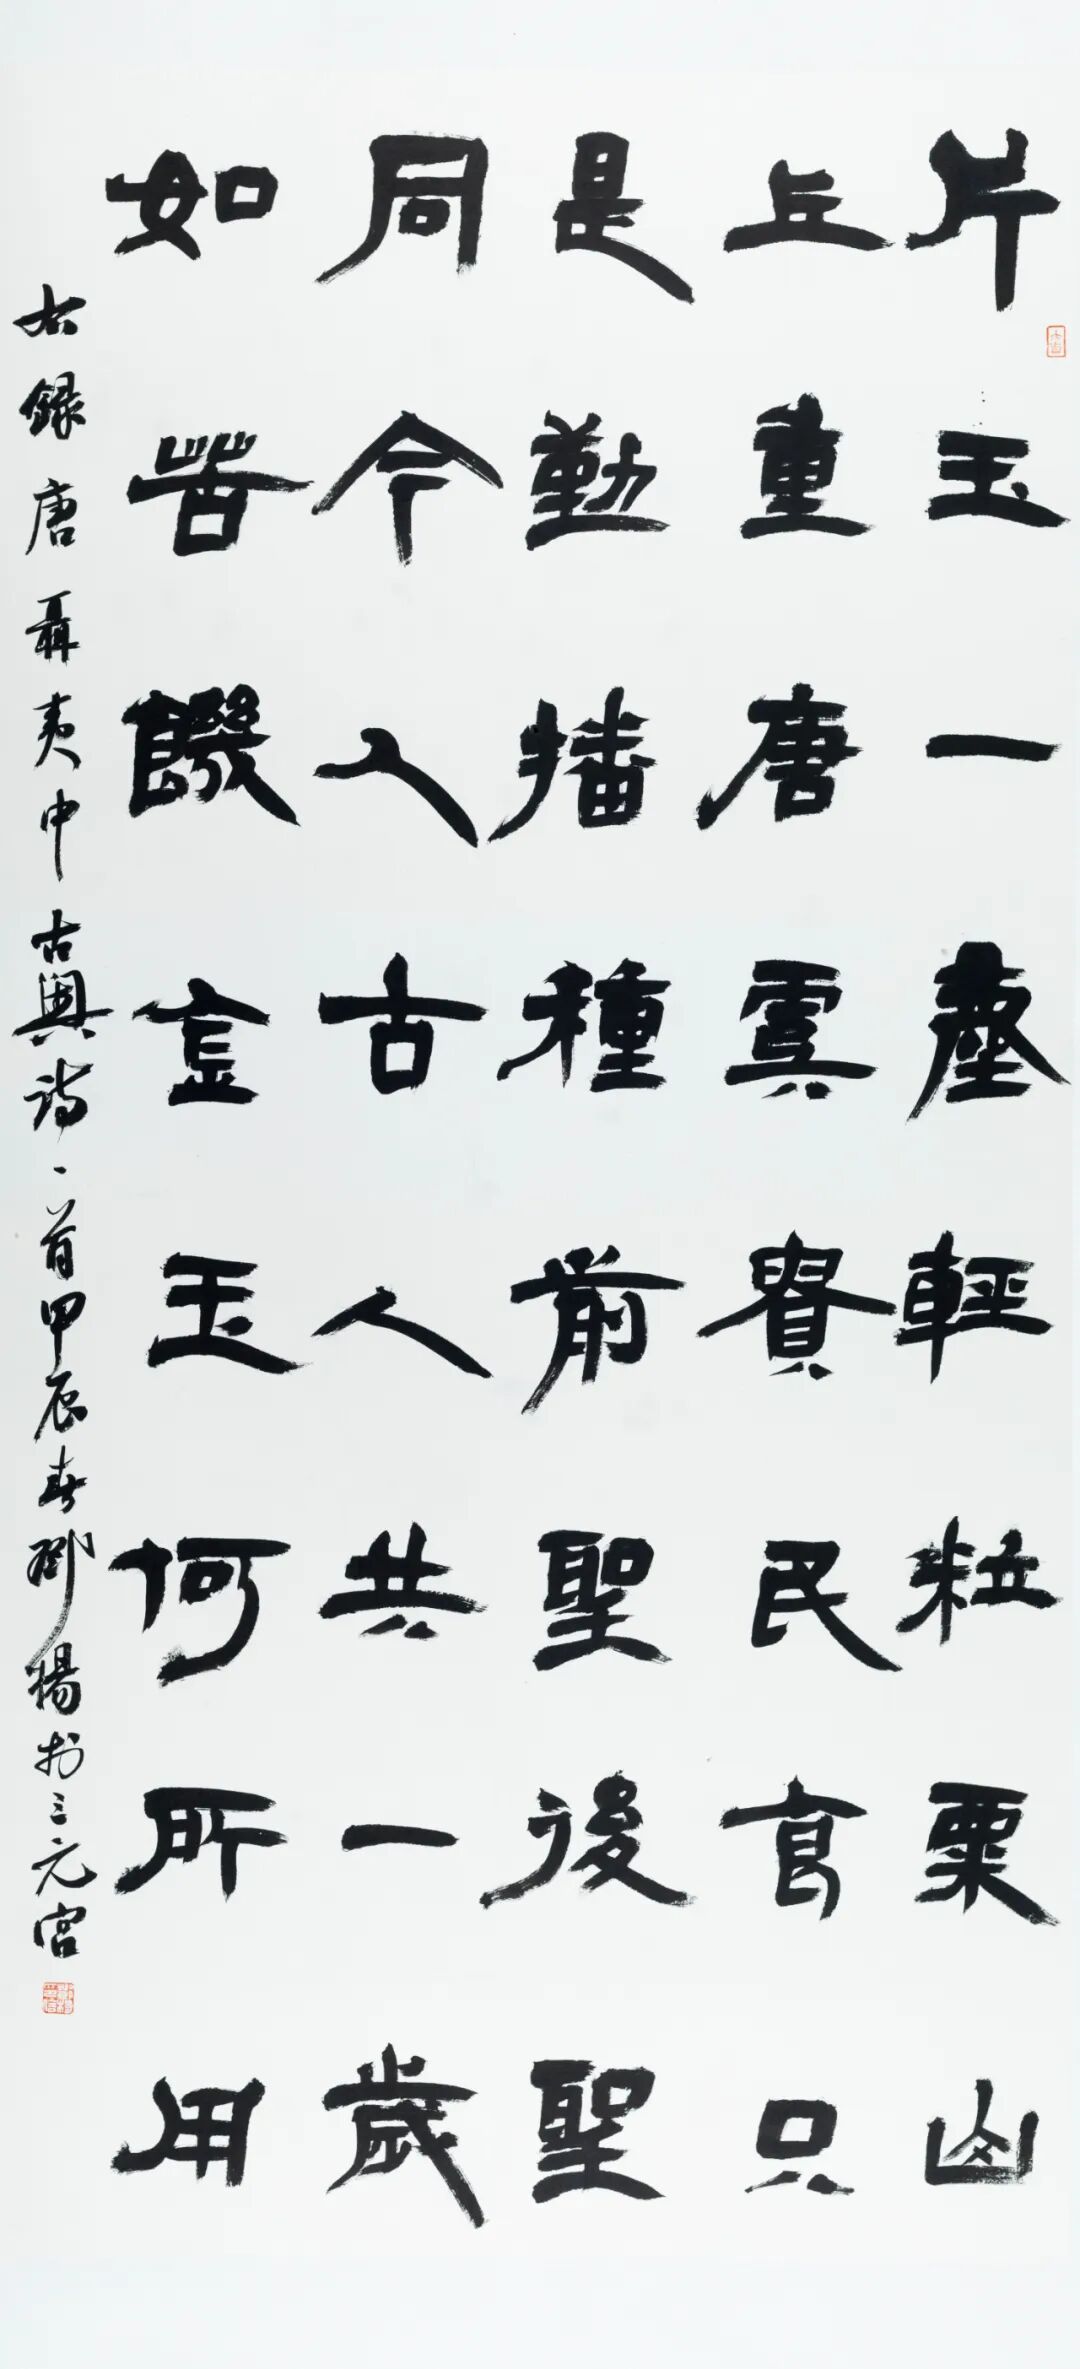 片玉一塵輕粒粟山
丘重唐虞貴民食只
是勤播種前聖後聖
同今人古人共一歲
如苦饑金玉何所用
右錄唐聶夷中古興詩一首甲辰春楊於三元宮